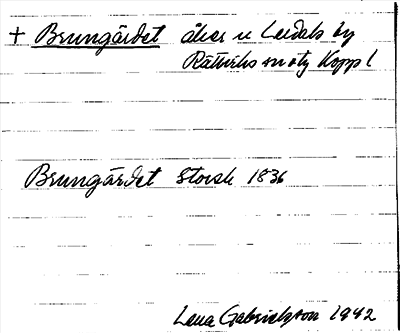 + Brungärdet åker u Leedals by
Rättviks
Brungärdet Storsk 1836
Lena Gabrielsson 1942